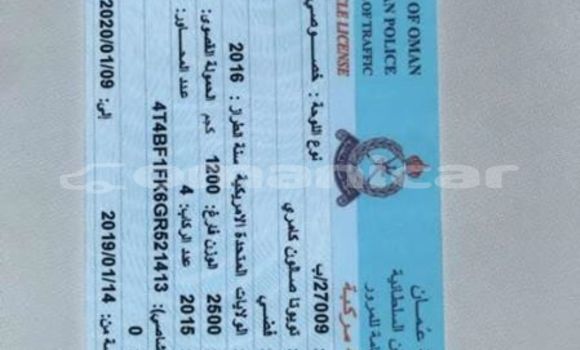 OF OMAN
N POLICE
OF TRAFFIC
CLE LICENSE
عُمان
ن السلطانية
مة للمرور
مركبة
27009/ب
نوع اللوحة : خصوصي
تويوتا صالون كامري
فضي
الولايات المتحدة الامريكية سنة الطراز : 2016
2500 الوزن فارغ: 1200 كجم الحمولة القصوى:
2015 عدد الركاب: 4 عدد المحاور:
شاصي): 4T4BF1FK6GR521413
0
ة من: 2019/01/14 إلى: 2020/01/09
omanicar